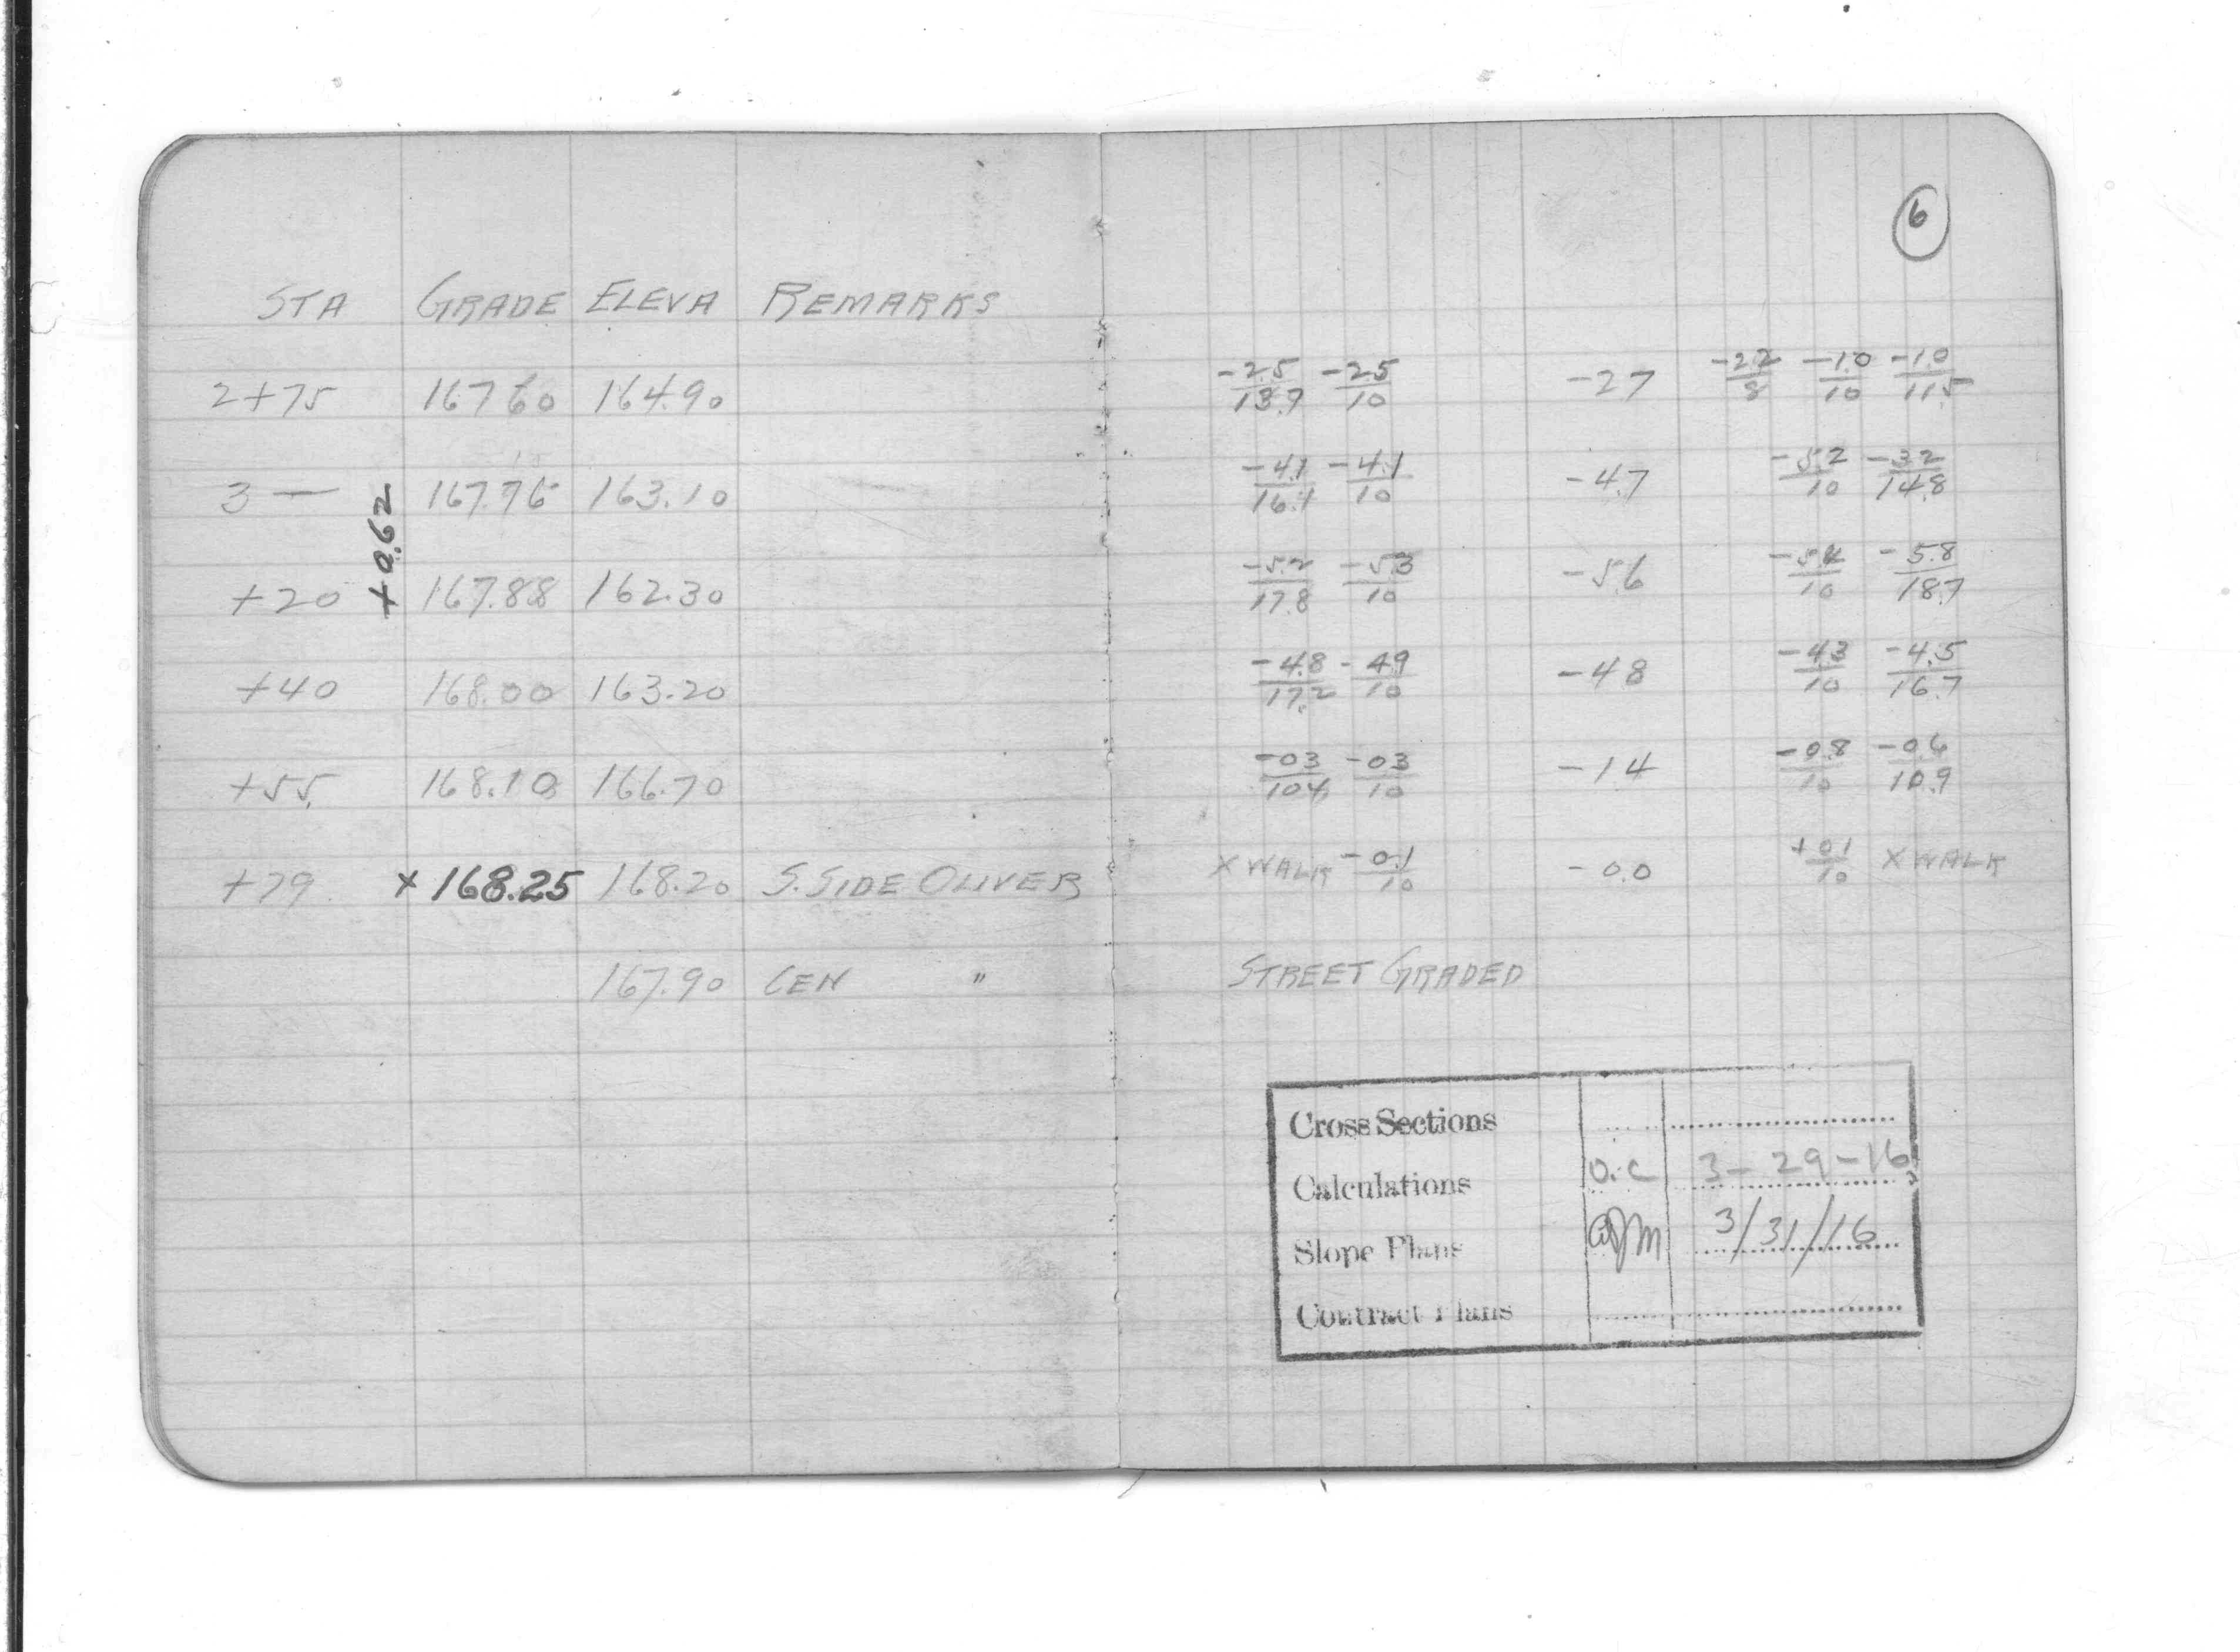 6
STA GRADE ELEVA REMARKS
2+75 167.60 164.90 -2.5/13.7 -2.5/10 -2.7 -2.2/8 -1.0/10 -1.0/11.5
3 — 167.76 163.10 -4.1/16.1 -4.1/10 -4.7 -5.2/10 -3.2/14.8
+0.62
+20 167.88 162.30 -5.2/17.8 -5.3/10 -5.6 -5.4/10 -5.8/18.7
+40 168.00 163.20 -4.8/17.2 -4.9/10 -4.8 -4.3/10 -4.5/16.7
+55 168.10 166.70 -0.3/10.4 -0.3/10 -1.4 -0.8/10 -0.6/10.9
+79 x 168.25 168.20 S. SIDE OLIVER X WALK -0.1/10 -0.0 +0.1/10 X WALK
167.90 CEN " STREET GRADED
Cross Sections
Calculations O.C 3-29-16
Slope Plans 3/31/16
Contract Plans